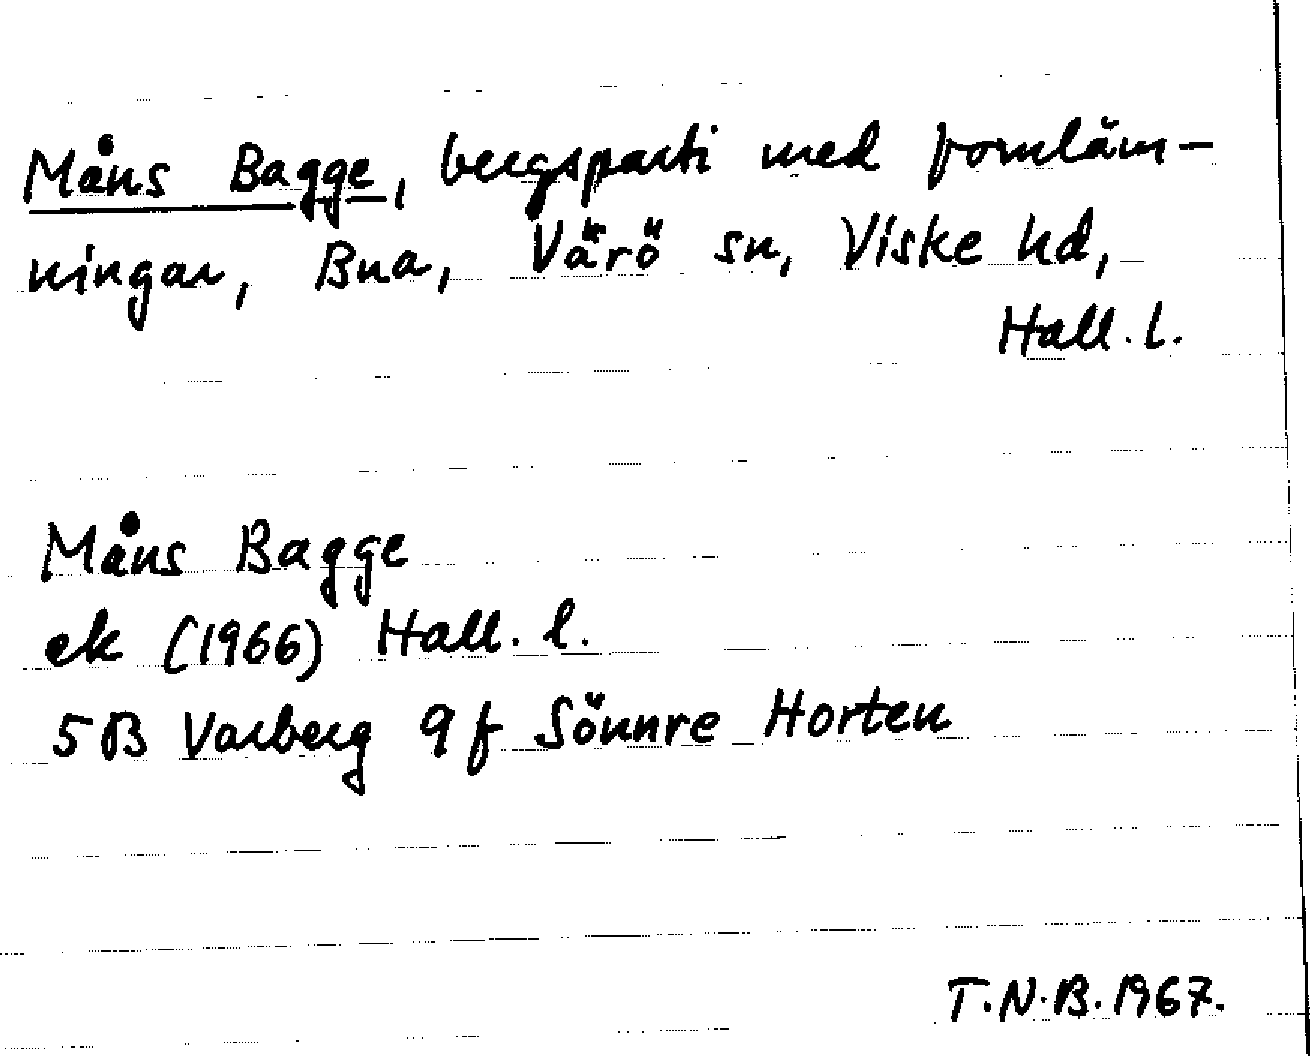 Måns Bagge, bergsparti med fornläm-
ningar, Bua, Värö sn, Viske hd,
Hall. l.
Måns Bagge
ek (1966) Hall. l.
5B Varberg 9f Sönnre Horten
T.N.B. 1967.